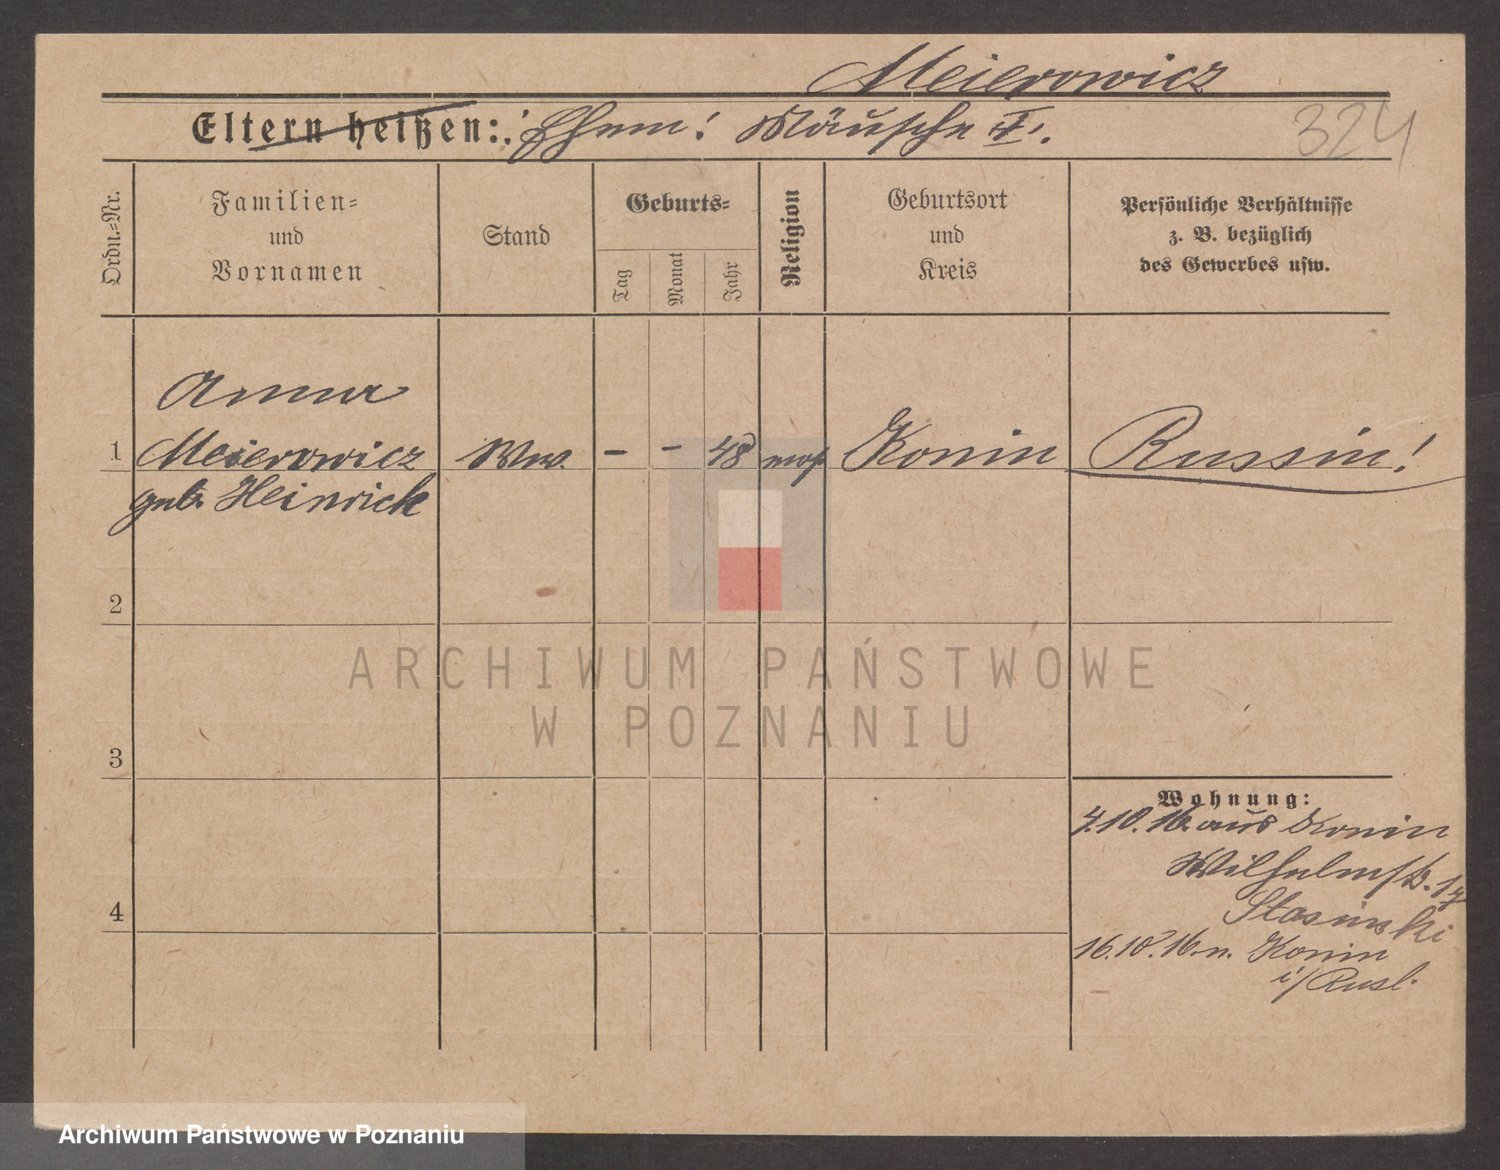 Meierowicz
Eltern heißen: Ehem: Mäusche I.
324
Ordn.-Nr.
Familien-
und
Vornamen
Stand
Geburts-
Tag
Monat
Jahr
Religion
Geburtsort
und
Kreis
Persönliche Verhältnisse
z. B. bezüglich
des Gewerbes usw.
Anna
1 Meierowicz Ww. - - 48 mos Konin Russin!
geb. Heinrich
2
3
4
Wohnung:
4.10.16. aus Konin
Wilhelmstr. 17
Stasinski
16.10.16. n. Konin
i/Rusl.
ARCHIWUM PAŃSTWOWE
W POZNANIU
Archiwum Państwowe w Poznaniu